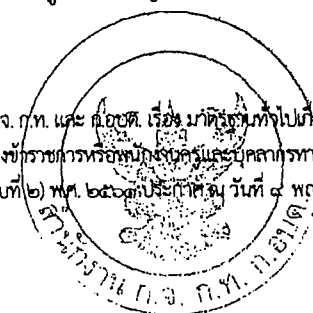 จ. ก.ท. และ ก.อบต. เรื่อง มาตรฐานทั่วไปเกี่
งข้าราชการหรือพนักงานครูและบุคลากรทา
บที่ ๒) พ.ศ. ๒๕๖๑ ประกาศ ณ วันที่ ๙ พฤ
สำนักงาน ก.จ. ก.ท. ก.อบต.